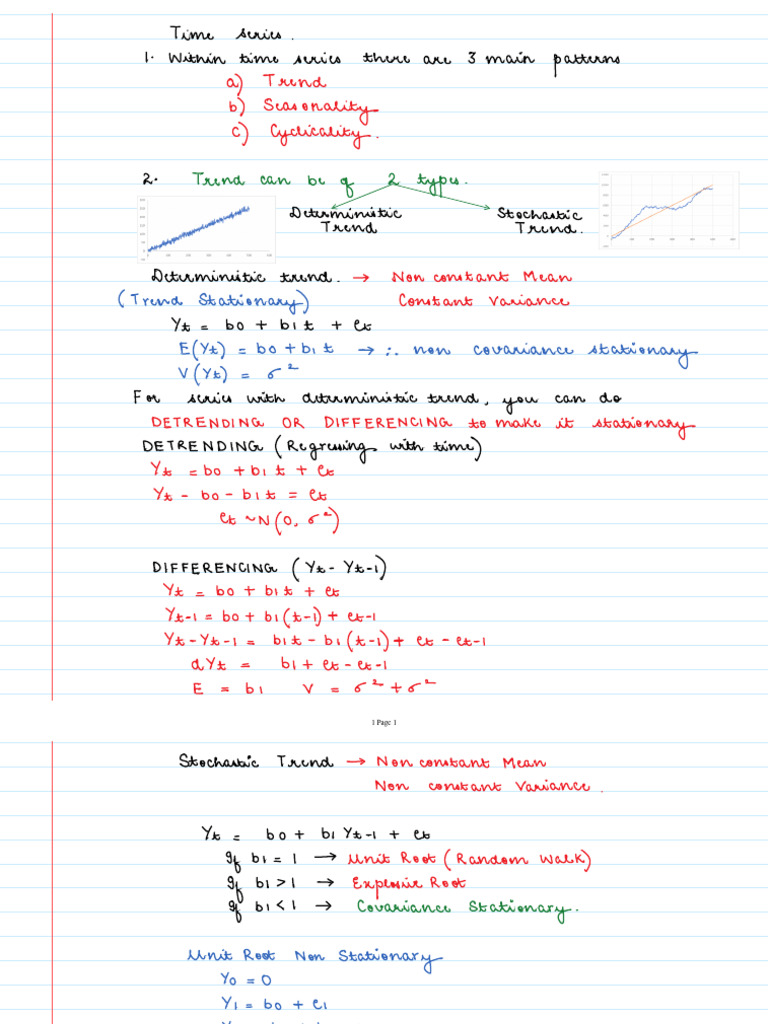 Time series.
1. Within time series there are 3 main patterns
a) Trend
b) Seasonality
c) Cyclicality.
2. Trend can be of 2 types.
Deterministic Trend
Stochastic Trend.
Deterministic trend. → Non constant Mean
(Trend Stationary) Constant Variance
Yt = b0 + b1 t + et
E(Yt) = b0 + b1 t → ∴ non covariance stationary
V(Yt) = σ²
For series with deterministic trend, you can do
DETRENDING OR DIFFERENCING to make it stationary
DETRENDING (Regressing with time)
Yt = b0 + b1 t + et
Yt - b0 - b1 t = et
et ~ N(0, σ²)
DIFFERENCING (Yt - Yt-1)
Yt = b0 + b1 t + et
Yt-1 = b0 + b1(t-1) + et-1
Yt - Yt-1 = b1 t - b1(t-1) + et - et-1
dYt = b1 + et - et-1
E = b1 V = σ² + σ²
1 Page 1
Stochastic Trend → Non constant Mean
Non constant Variance.
Yt = b0 + b1 Yt-1 + et
If b1 = 1 → Unit Root (Random Walk)
If b1 > 1 → Explosive Root
If b1 < 1 → Covariance Stationary.
Unit Root Non Stationary
Y0 = 0
Y1 = b0 + e1